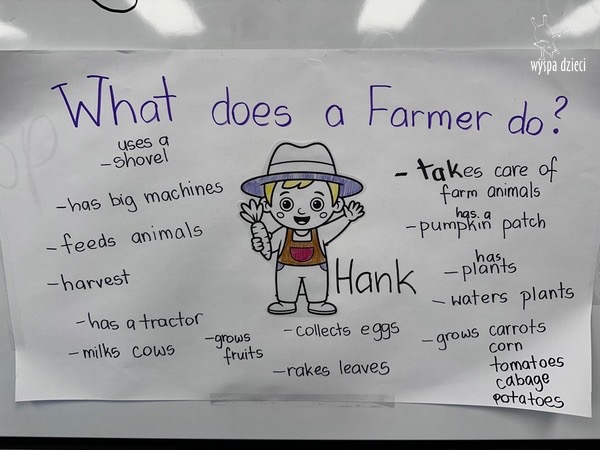 What does a Farmer do?
wyspa dzieci
uses a
- shovel
- has big machines
- feeds animals
- harvest
- has a tractor
- milks cows
- grows
fruits
- collects eggs
- rakes leaves
Hank
- takes care of
farm animals
has a
- pumpkin patch
has
- plants
- waters plants
- grows carrots
corn
tomatoes
cabage
potatoes